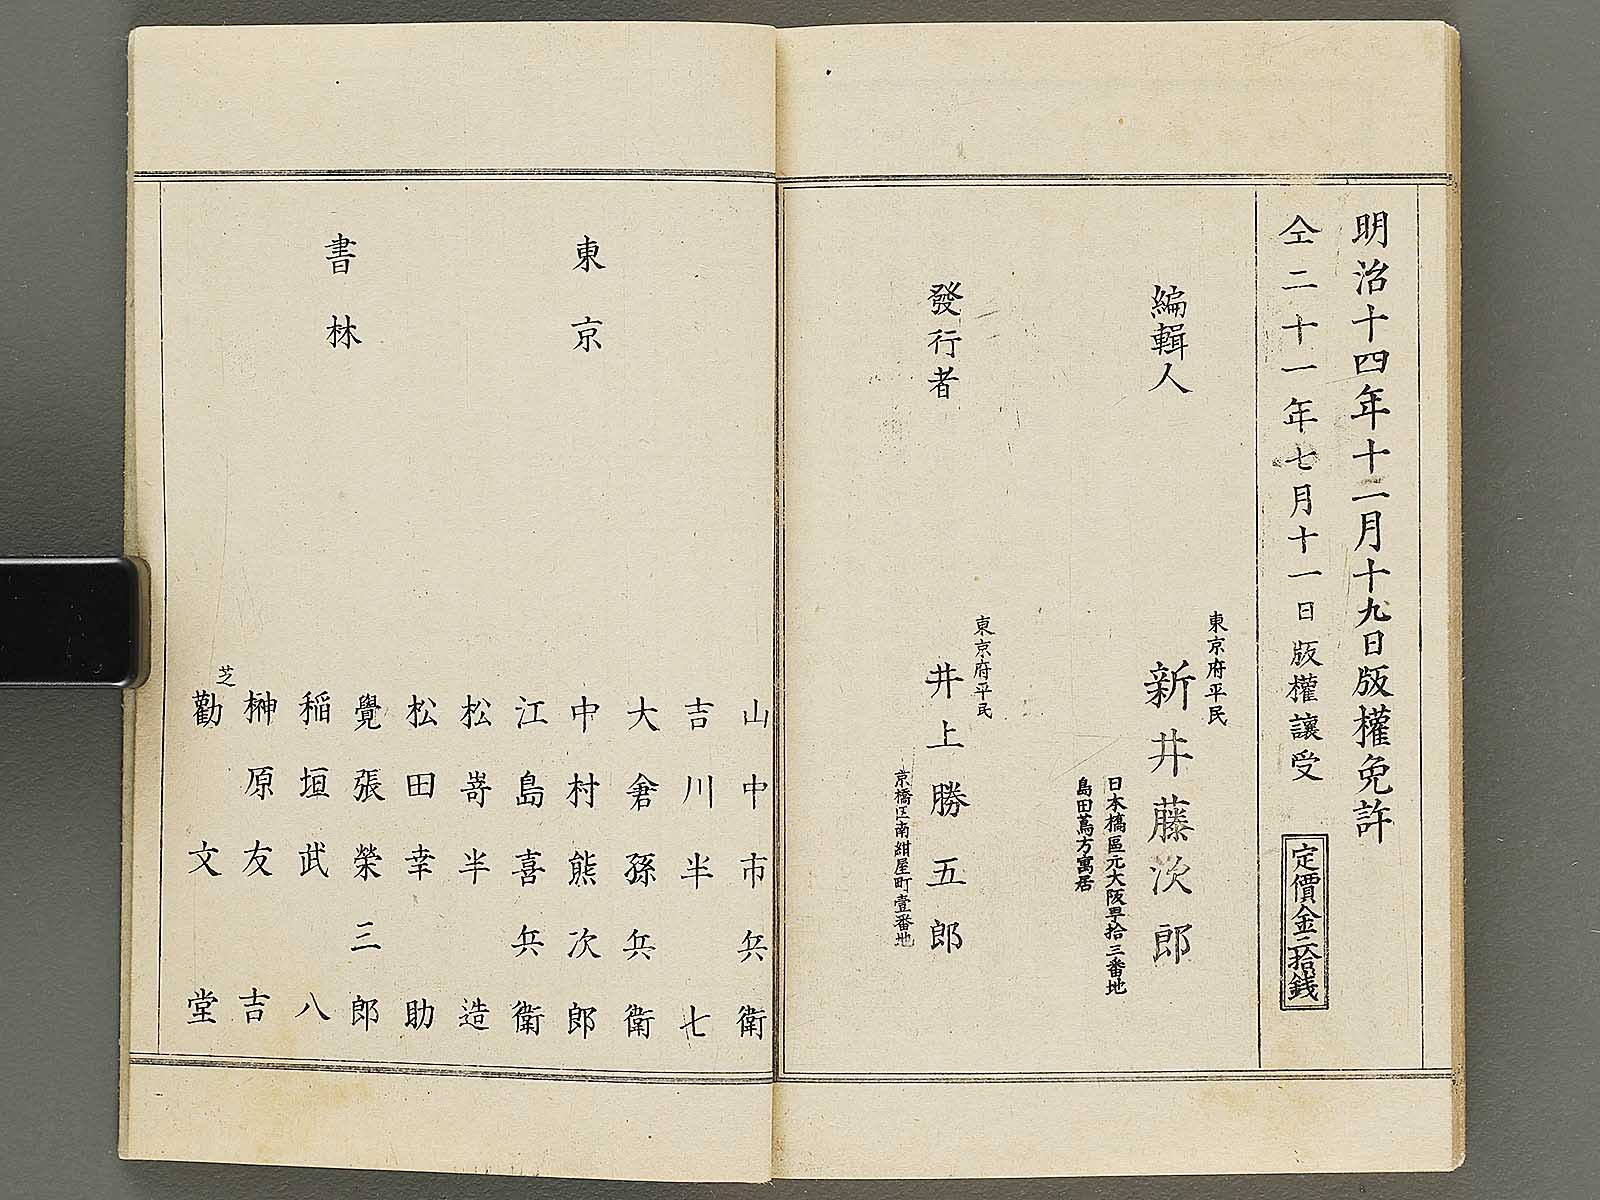 明治十四年十二月十九日版權免許
仝二十一年七月十一日版權讓受
定價金三拾銭
編輯人
東京府平民
新井藤次郎
日本橋區元大阪甼拾三番地
島田蔦方寓居
發行者
東京府平民
井上勝五郎
京橋区南紺屋町壹番地
東京
書林
山中市兵衛
吉川半七
大倉孫兵衛
中村熊次郎
江島喜兵衛
松嵜半造
松田幸助
覺張榮三郎
稲垣武八
榊原友吉
芝
勸文堂